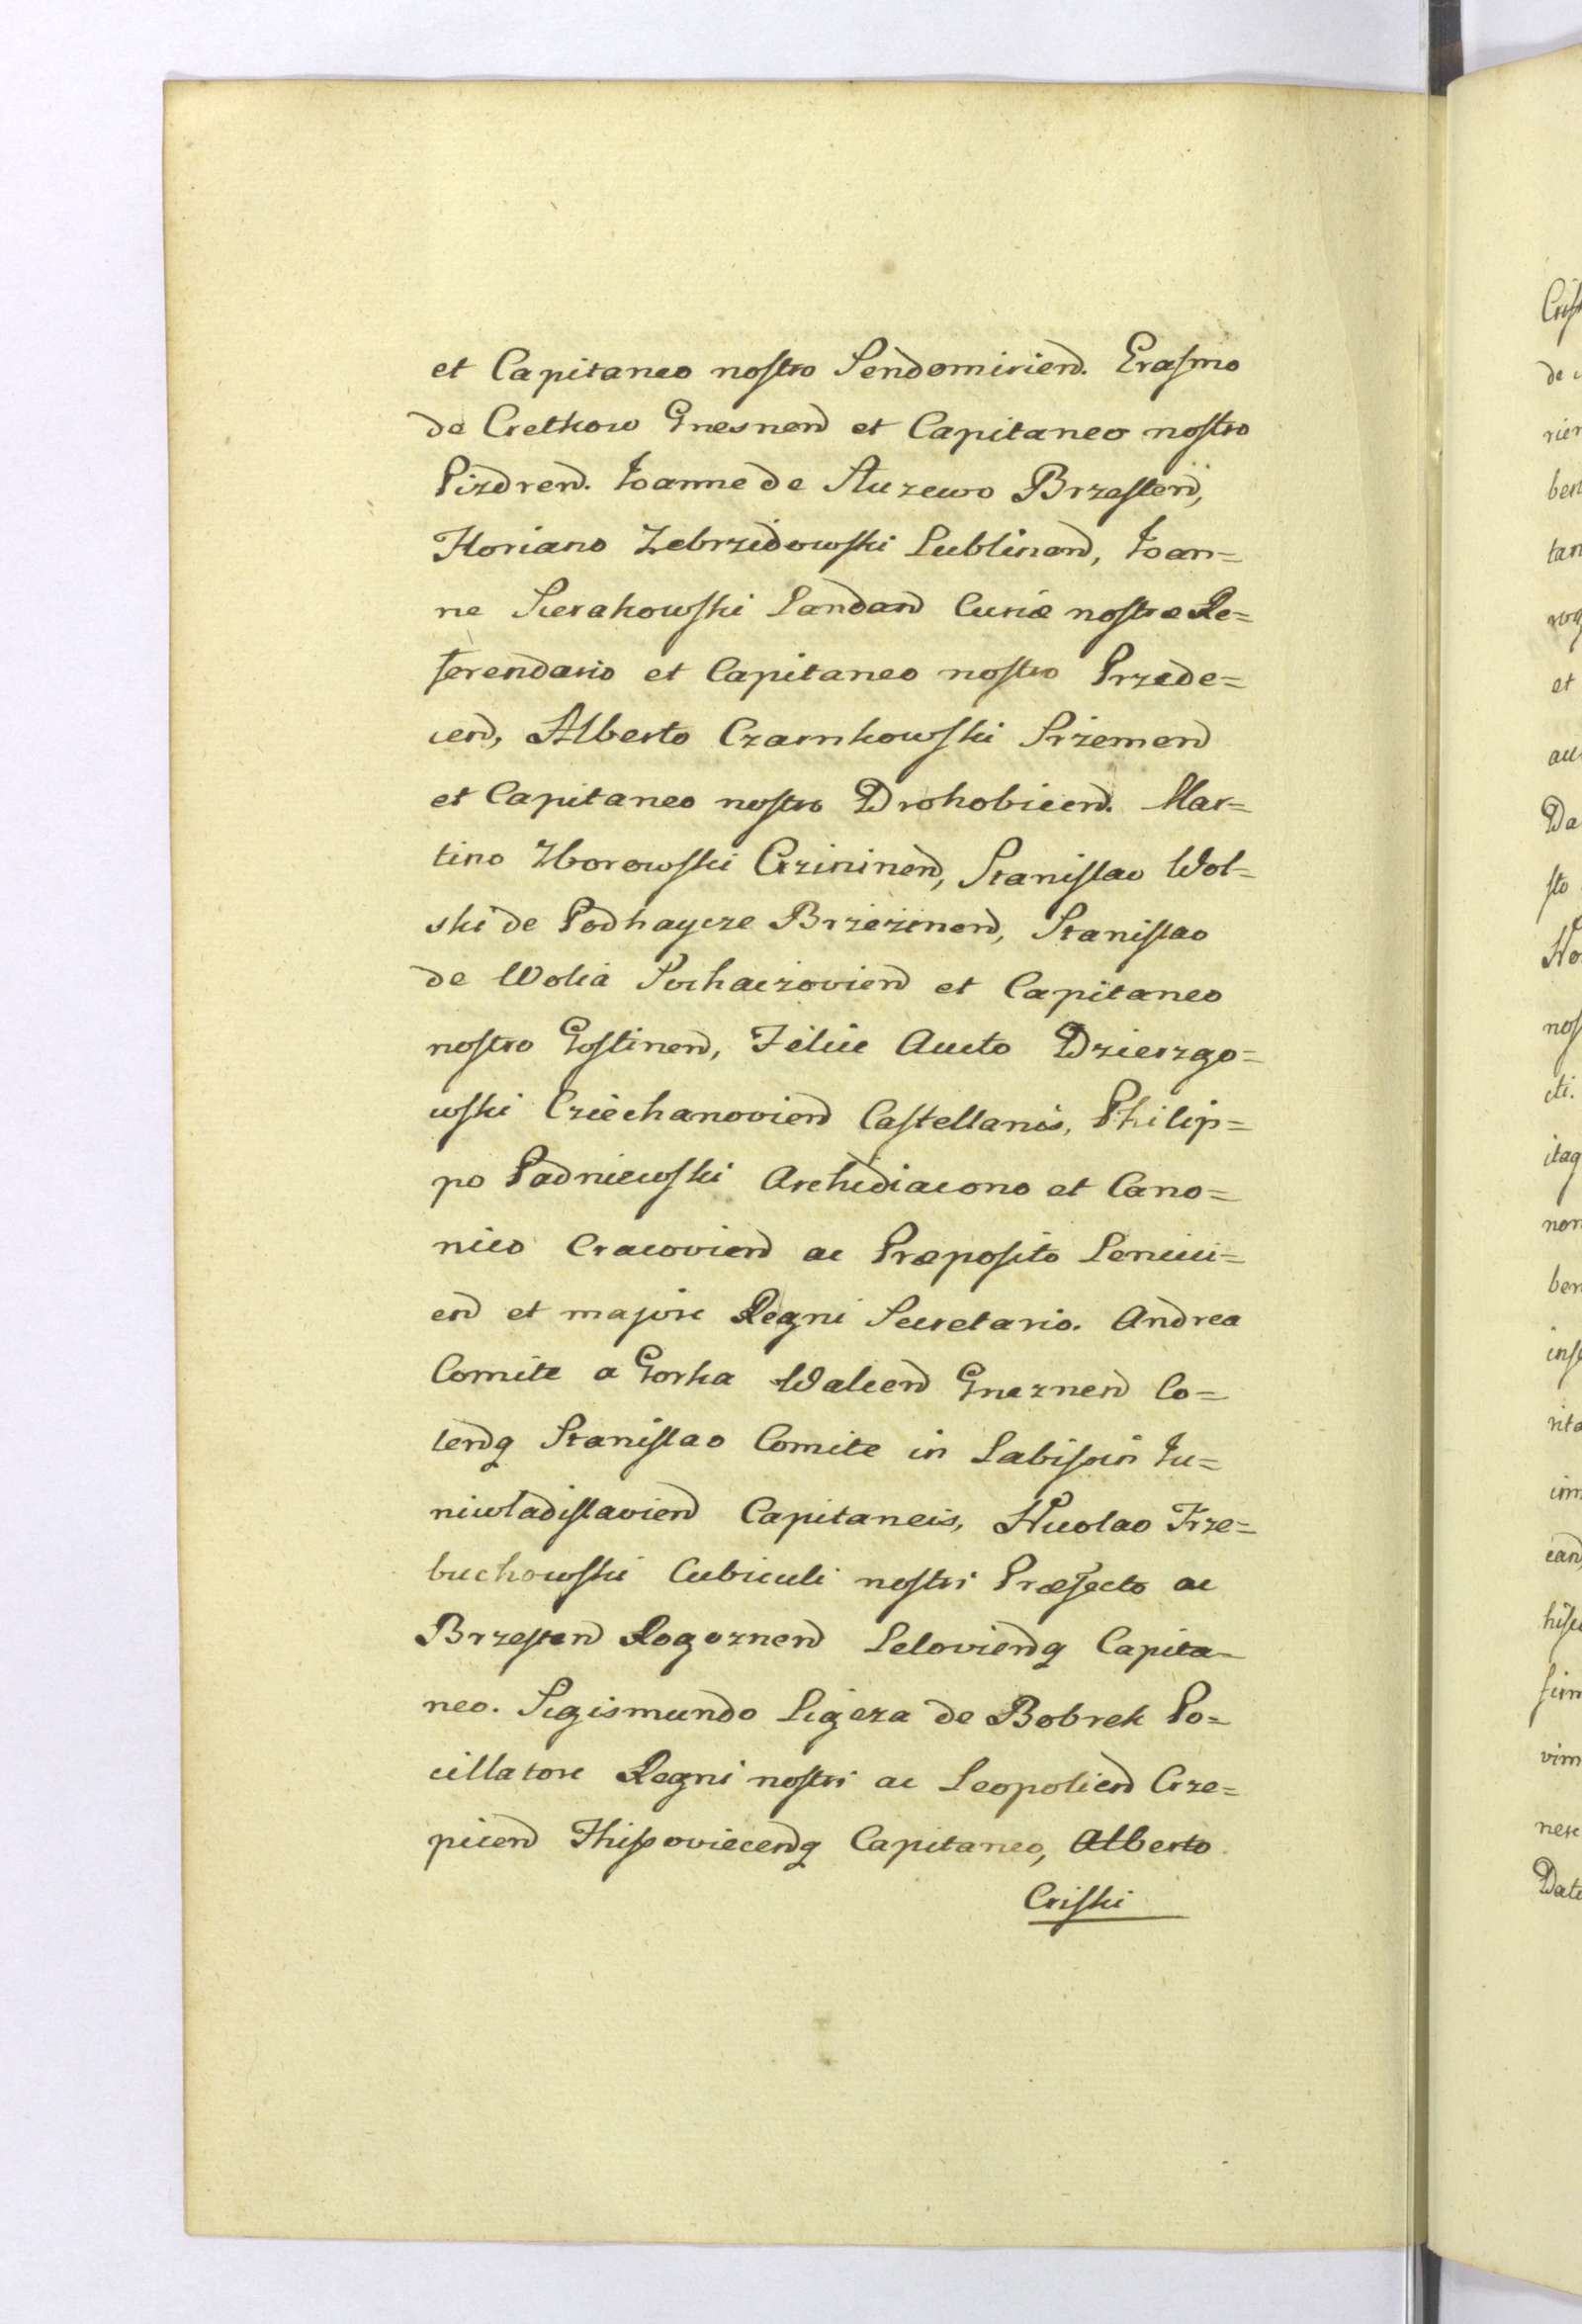 et Capitaneo nostro Sendomirien̄. Erasmo
de Cretkow Gnesnen̄ et Capitaneo nostro
Pizdren̄. Joanne de Auzewo Brzesten̄,
Floriano Zebrzidowski Lublinen̄, Joan=
ne Sierakowski Landen̄ Curiæ nostræ Re=
ferendario et Capitaneo nostro Przede=
cen̄, Alberto Czarnkowski Srzemen̄
et Capitaneo nostro Drohobicen̄. Mar=
tino Zborowski Crzininen̄, Stanislao Wol=
ski de Podhaycze Brzezinen̄, Stanislao
de Wolia Sochaczovien̄ et Capitaneo
nostro Gostinen̄, Felice Aucto Dzierzgo=
wski Cziechanovien̄ Castellanis, Philip=
po Padniewski Archidiacono et Cano=
nico Cracovien̄ ac Præposito Lencici=
en̄ et majore Regni Secretario. Andrea
Comite a Gorka Walcen̄ Gneznen̄ Co=
lenq̄ Stanislao Comite in Labissin Ju=
niwladislavien̄ Capitaneis, Nicolao Trze=
buchowski Cubiculi nostri Præfecto ac
Brzesten̄ Rogoznen̄ Lelovienq̄ Capita=
neo. Sigismundo Ligeza de Bobrek Po=
cillatore Regni nostri ac Leopolien̄ Crze=
picen̄ Capitaneo, Alberto
Criski
Cris
de
rien
ben
tan
et
Da
sto
No
nos
cti.
itaq
non
ben
ins
rita
him
vim
Dat